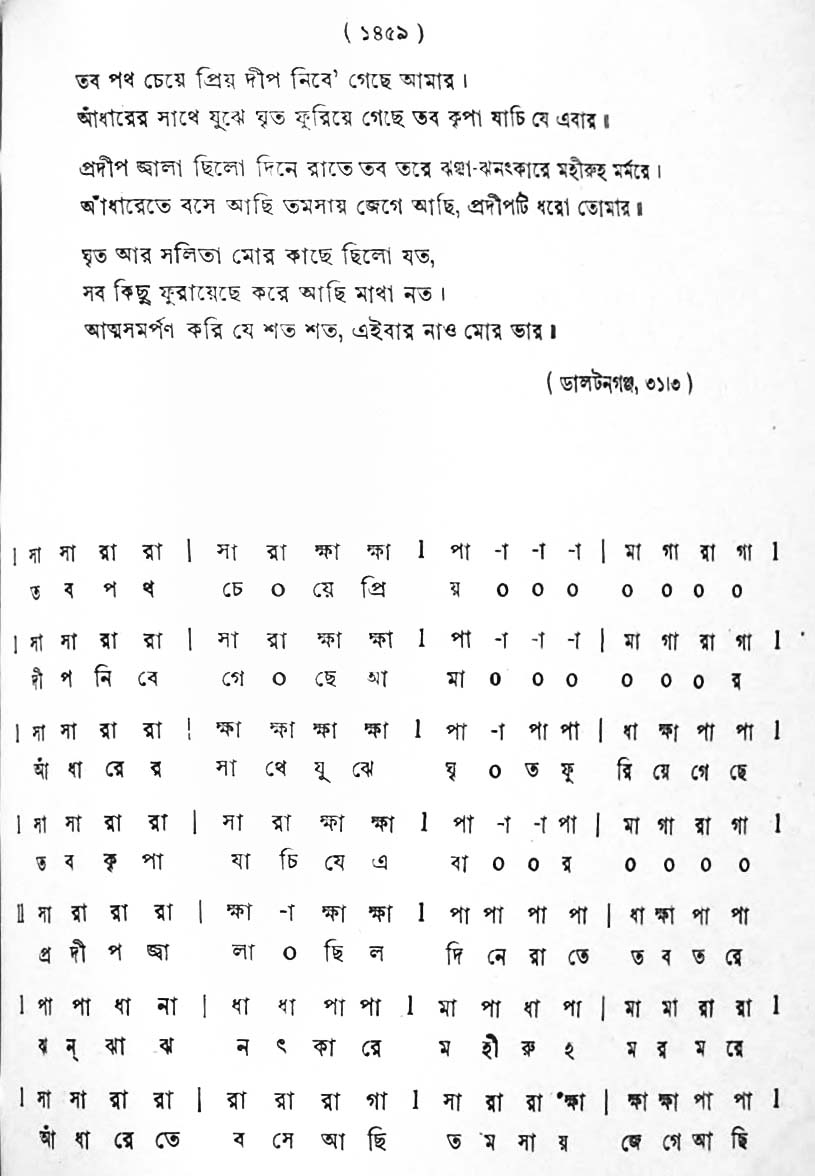 ( ১৪৫৯ )
তব পথ চেয়ে প্রিয় দীপ নিবে' গেছে আমার ।
আঁধারের সাথে যুঝে ঘৃত ফুরিয়ে গেছে তব কৃপা যাচি যে এবার ॥
প্রদীপ জ্বালা ছিলো দিনে রাতে তব তরে ঝঞ্ঝা-ঝনৎকারে মহীরুহ মর্মরে ।
আঁধারেতে বসে আছি তমসায় জেগে আছি, প্রদীপটি ধরো তোমার ॥
ঘৃত আর সলিতা মোর কাছে ছিলো যত,
সব কিছু ফুরায়েছে করে আছি মাথা নত ।
আত্মসমর্পণ করি যে শত শত, এইবার নাও মোর ভার ॥
( ডালটনগঞ্জ, ৩১।৩ )
| সা সা রা রা | সা রা ক্ষা ক্ষা l পা -া -া -া | মা গা রা গা l
ত ব প থ চে ০ য়ে প্রি য় ০ ০ ০ ০ ০ ০ ০
| সা সা রা রা | সা রা ক্ষা ক্ষা l পা -া -া -া | মা গা রা গা l
দী প নি বে গে ০ ছে আ মা ০ ০ ০ ০ ০ ০ র
| সা সা রা রা | ক্ষা ক্ষা ক্ষা ক্ষা l পা -া পা পা | ধা ক্ষা পা পা l
আঁ ধা রে র সা থে যু ঝে ঘৃ ০ ত ফু রি য়ে গে ছে
| সা সা রা রা | সা রা ক্ষা ক্ষা l পা -া -া পা | মা গা রা গা l
ত ব কৃ পা যা চি যে এ বা ০ ০ র ০ ০ ০ ০
ll সা রা রা রা | ক্ষা -া ক্ষা ক্ষা l পা পা পা পা | ধা ক্ষা পা পা
প্র দী প জ্বা লা ০ ছি ল দি নে রা তে ত ব ত রে
l পা পা ধা না | ধা ধা পা পা l মা পা ধা পা | মা মা রা রা l
ঝ ন্ ঝা ঝ ন ৎ কা রে ম হী রু হ ম র ম রে
l সা সা রা রা | রা রা রা গা l সা রা রা ক্ষা | ক্ষা ক্ষা পা পা l
আঁ ধা রে তে ব সে আ ছি ত ম সা য় জে গে আ ছি